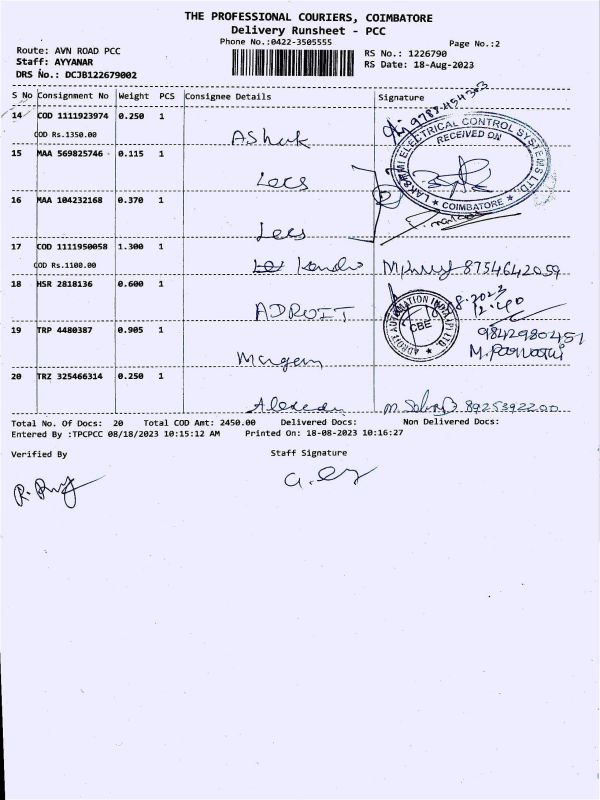 THE PROFESSIONAL COURIERS, COIMBATORE
Delivery Runsheet - PCC
Phone No.:0422-3505555
Page No.:2
Route: AVN ROAD PCC
RS No.: 1226790
Staff: AYYANAR
RS Date: 18-Aug-2023
DRS No.: DCJB122679002
S No Consignment No Weight PCS Consignee Details Signature
14 COD 1111923974 0.250 1
COD Rs.1350.00
Ashok
LAKSHMI ELECTRICAL CONTROL SYSTEMS LTD.
RECEIVED ON
★ COIMBATORE ★
15 MAA 569825746 0.115 1
Lecs
16 MAA 104232168 0.370 1
Lecs
17 COD 1111950058 1.300 1
COD Rs.1100.00
8754642059
18 HSR 2818136 0.600 1
ADROIT
ADROIT AUTOMATION INDIA (P) LTD.
CBE
8.2023
12.40
19 TRP 4480387 0.905 1
9842980451
M. Parvathi
20 TRZ 325466314 0.250 1
8925392200
Total No. Of Docs: 20 Total COD Amt: 2450.00 Delivered Docs: Non Delivered Docs:
Entered By :TPCPCC 08/18/2023 10:15:12 AM Printed On: 18-08-2023 10:16:27
Verified By Staff Signature